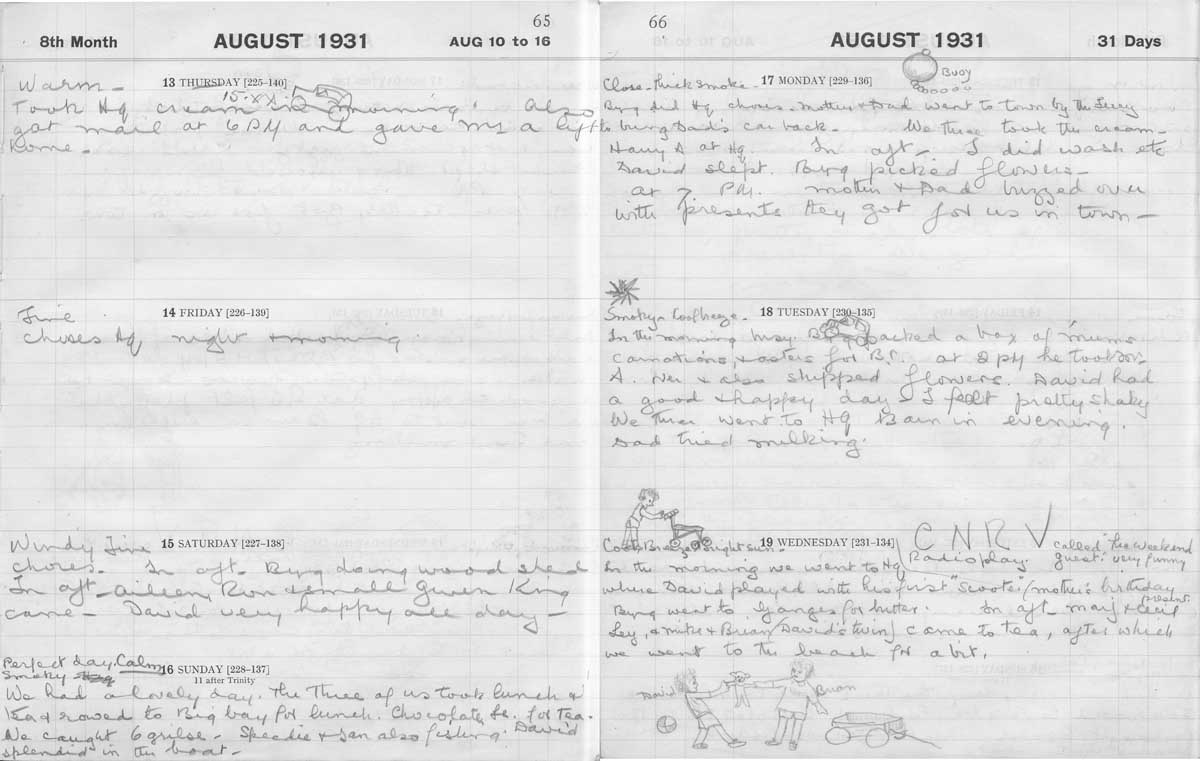 65
8th Month AUGUST 1931 AUG 10 to 16
Warm - 13 THURSDAY [225-140]
Took Hq cream in morning. also
got mail at 6 PM and gave me a lift
home -
Fine 14 FRIDAY [226-139]
Chores Hq night & morning.
Windy Fine 15 SATURDAY [227-138]
chores. In aft. Byng doing wood shed
In aft - aileen, Ron & small Gwen King
came - David very happy all day -
Perfect day. Calm 16 SUNDAY [228-137]
Smoky 11 after Trinity
We had a lovely day. The three of us took lunch &
tea & rowed to Big bay for lunch. Chocolate for tea.
We caught 6 grilse - Speedie & Jan also fishing. David
splendid in the boat -
66
AUGUST 1931 31 Days
Buoy
Close. Thick smoke. 17 MONDAY [229-136]
Byng did Hq chores. mother & Dad went to town by the Ferry
to bring Dad's car back. We three took the cream -
Harry A at Hq. In aft - I did wash etc
David slept. Byng picked flowers -
at 7 PM. mother & Dad buzzed over
with presents they got for us in town -
Smoky - Cool breeze. 18 TUESDAY [230-135]
In the morning busy. B packed a box of mums
carnations, & asters for Br. at 2 PM he took
A. & also shipped flowers. David had
a good & happy day - I felt pretty shaky
We three went to Hq Barn in evening.
Dad tried milking.
Cool Breeze Bright sun. 19 WEDNESDAY [231-134] C N R V called "The weekend
In the morning we went to Hq Radio play guest" very funny
where David played with his first "Scooter" (mother's birthday present.
Byng went to Ganges for butter. In aft. marj & Cecil
Ley, & mike & Brian (David's twin) came to tea, after which
we went to the beach for a bit.
David Brian